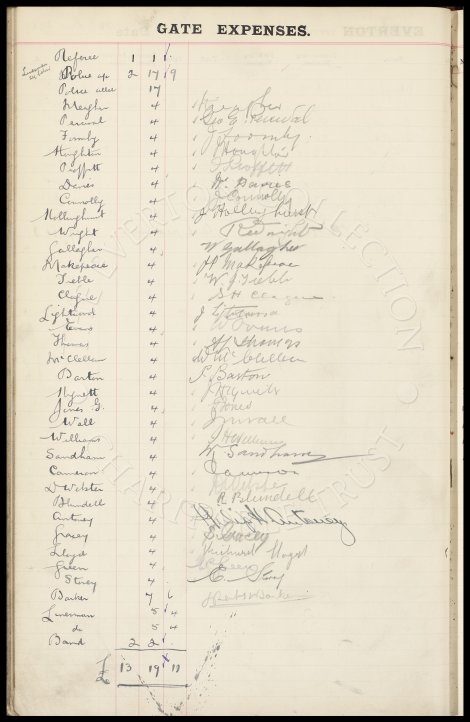 GATE EXPENSES.
Referee 1 1
Police 2 17 9
Police 17
Meagher 4
Percival 4 Geo E Percival
Formby 4 J Formby
Houghton 4 Houghton
Proffitt 4 Proffitt
Davies 4 W. Davies
Connolly 4 J Connolly
Hollinghurst 4 J Hollinghurst
Wright 4
Gallagher 4 W Gallagher
Makepeace 4 H Makepeace
Treble 4 W J Treble
Clague 4 S H Clague
Lightwood 4 J
Evans 4 W Evans
Thomas 4 Thomas
McClellan 4 W McClellan
Barton 4 P. Barton
Hignett 4 J Hignett
Jones G. 4 Jones
Wall 4 J Wall
Williams 4 Williams
Sandham 4 Sandham
Cameron 4 Cameron
D Webster 4 Webster
Blundell 4 R Blundell
Antney 4 Philip H Antney
Gracey 4 Gracey
Lloyd 4 Richard Lloyd
Green 4 Green
Storey 4 E Story
Barker 7 6 Barker
Linesman 5 4
do 5 4
Band 2 2
£ 13 19 11
EVERTON COLLECTION
CHARITABLE TRUST